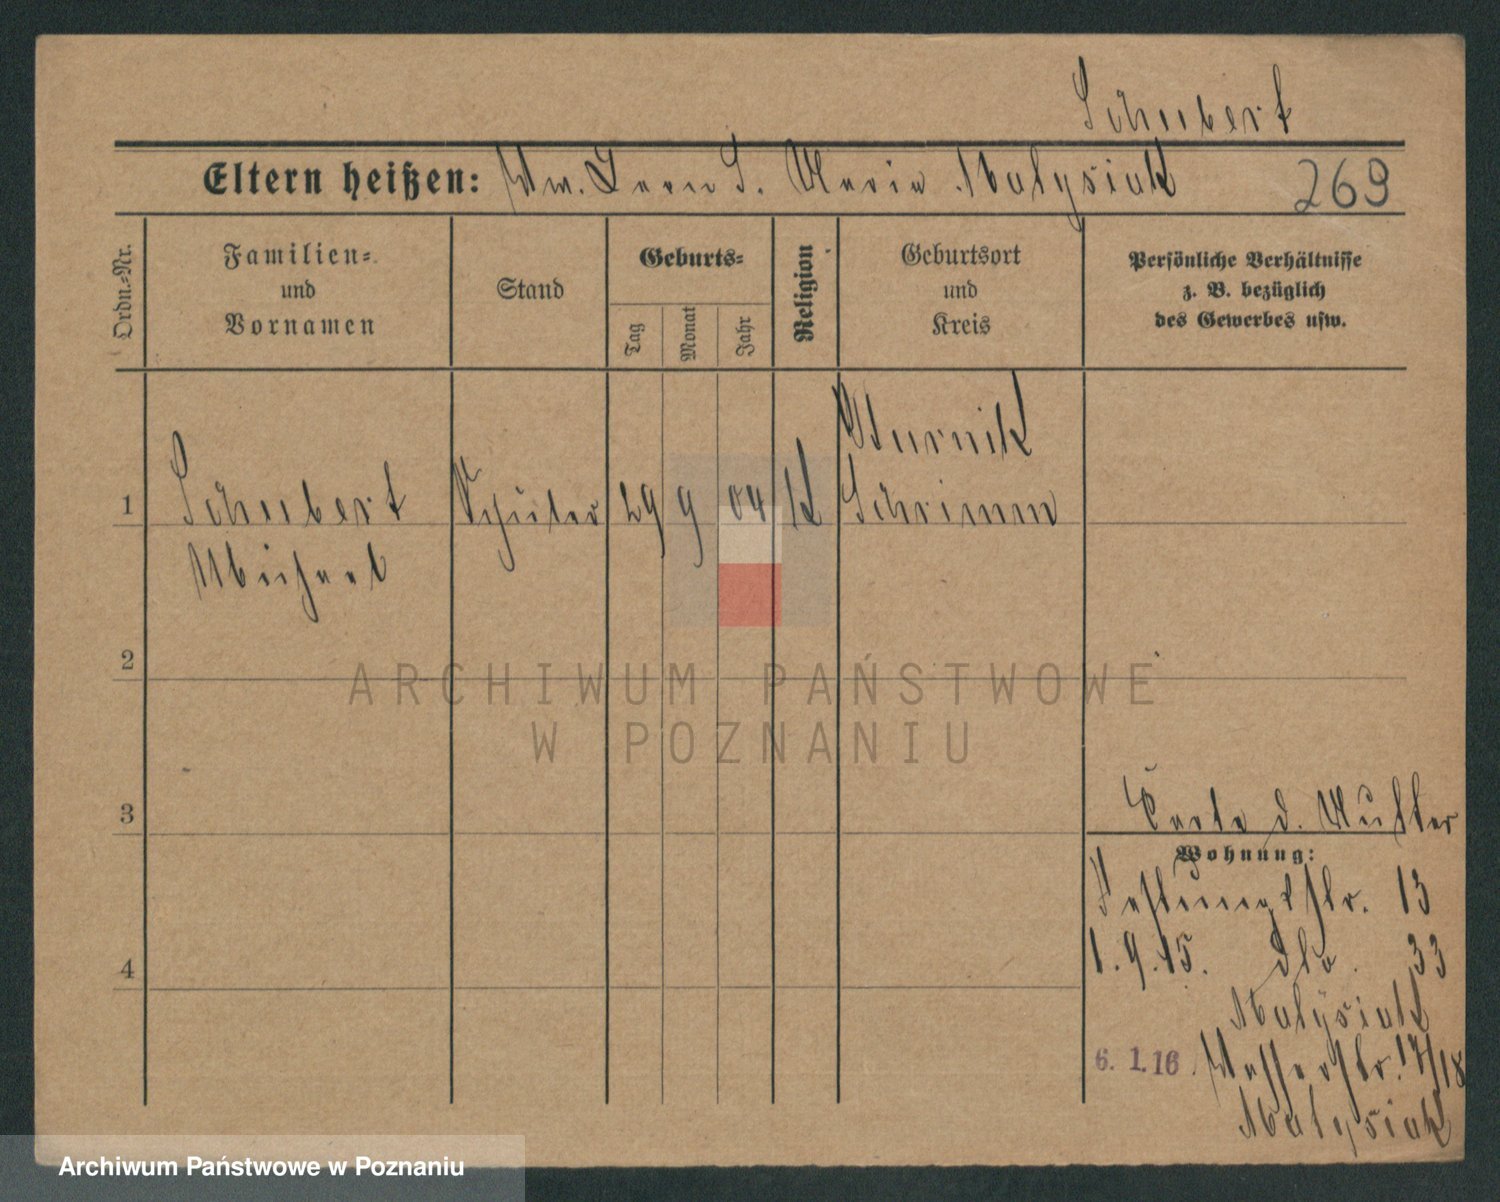 Schubert
Eltern heißen: Ww. Maria Malysiak 269
Ordn.-Nr.
Familien-
und
Vornamen
Stand
Geburts-
Tag
Monat
Jahr
Religion
Geburtsort
und
Kreis
Persönliche Verhältnisse
z. B. bezüglich
des Gewerbes usw.
1 Schubert Schüler 29 9 04 K Schrimm
Michael
2
3
4
Karte d. Mutter
Wohnung:
Festungsstr. 13
1.9.15. dto. 33
Malysiak
6. 1.16. Wasserstr. 17/18
Malysiak
ARCHIWUM PAŃSTWOWE
W POZNANIU
Archiwum Państwowe w Poznaniu